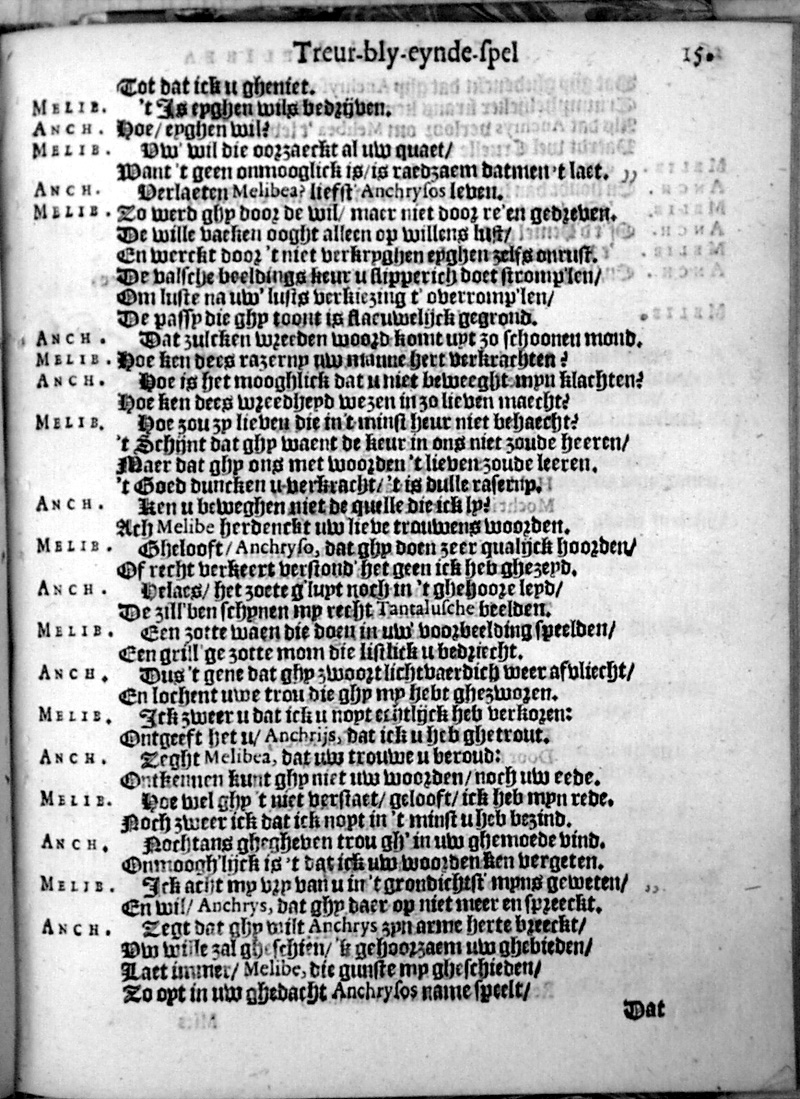 Treur-bly-eynde-ſpel 15.
Tot dat ick u gheniet.
MELIB. 't Is eyghen wils bedrijven.
ANCH. Hoe/ eyghen wil?
MELIB. Uw' wil die oorzaeckt al uw quaet/
Want 't geen onmooglick is/ is raedzaem datmen 't laet. ,,
ANCH. Verlaeten Melibea? liefst Anchryſos leven.
MELIB. Zo werd ghy door de wil/ maer niet door re'en gedreven.
De wille vaeken ooght alleen op willens lust/
En werckt door 't niet verkryghen eyghen zelfs onrust.
De valsche beeldings keur u slipperich doet stromp'len/
Om luste na uw' lusts verkiezing t' overromp'len/
De passy die ghy toont is flaeuwelijck gegrond.
ANCH. Dat zulcken wreeden woord komt uyt zo schoonen mond.
MELIB. Hoe ken dees razerny uw manne hert verkrachten?
ANCH. Hoe is het mooghlick dat u niet beweeght myn klachten?
Hoe ken dees wreedheyd wezen in zo lieven maecht?
MELIB. Hoe zou zy lieven die in't minst heur niet behaecht?
't Schijnt dat ghy waent de keur in ons niet zoude heeren/
Maer dat ghy ons met woorden 't lieven zoude leeren.
't Goed duncken u verkracht/ 't is dulle raserny.
ANCH. Ken u beweghen niet de quelle die ick ly?
Ach Melibe herdenckt uw lieve trouwens woorden.
MELIB. Ghelooft/ Anchryſo, dat ghy doen zeer qualijck hoorden/
Of recht verkeert verstond' het geen ick heb ghezeyd.
ANCH. Helaes/ het zoete g'luyt noch in 't ghehoore leyd/
De zill'ben schynen my recht Tantaluſche beelden.
MELIB. Een zotte waen die doen in uw' voorbeelding speelden/
Een grill'ge zotte mom die listlick u bedriecht.
ANCH. Dus 't gene dat ghy zwoort lichtvaerdich weer afvliecht/
En lochent uwe trou die ghy my hebt ghezworen.
MELIB. Ick zweer u dat ick u noyt echtlijck heb verkoren:
Ontgeeft het u/ Anchrijs, dat ick u heb ghetrout.
ANCH. Zeght Melibea, dat uw trouwe u beroud:
Ontkennen kunt ghy niet uw woorden/ noch uw eede.
MELIB. Hoe wel ghy 't niet verstaet/ gelooft/ ick heb myn rede.
Noch zweer ick dat ick noyt in 't minst u heb bezind.
ANCH. Nochtans ghegheven trou gh' in uw ghemoede vind.
Onmoogh'lijck is 't dat ick uw woorden ken vergeten.
MELIB. Ick acht my vry van u in 't grondichtst' myns geweten/ ,,
En wil/ Anchrys, dat ghy daer op niet meer en spreeckt.
ANCH. Zegt dat ghy wilt Anchrys zyn arme herte breeckt/
Uw wille zal gheschien/ 'k gehoorzaem uw ghebieden/
Laet immer/ Melibe, die gunste my gheschieden/
Zo oyt in uw ghedacht Anchryſos name speelt/
Dat